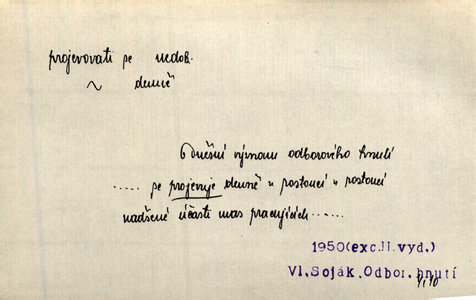 projevovati se nedok.
~ denně
Dnešní význam odborového hnutí
..... se projevuje denně v rostoucí a rostoucí
nadšené účasti mas pracujících .....
1950(exc.II.vyd.)
Vl.Soják,Odbor.hnutí